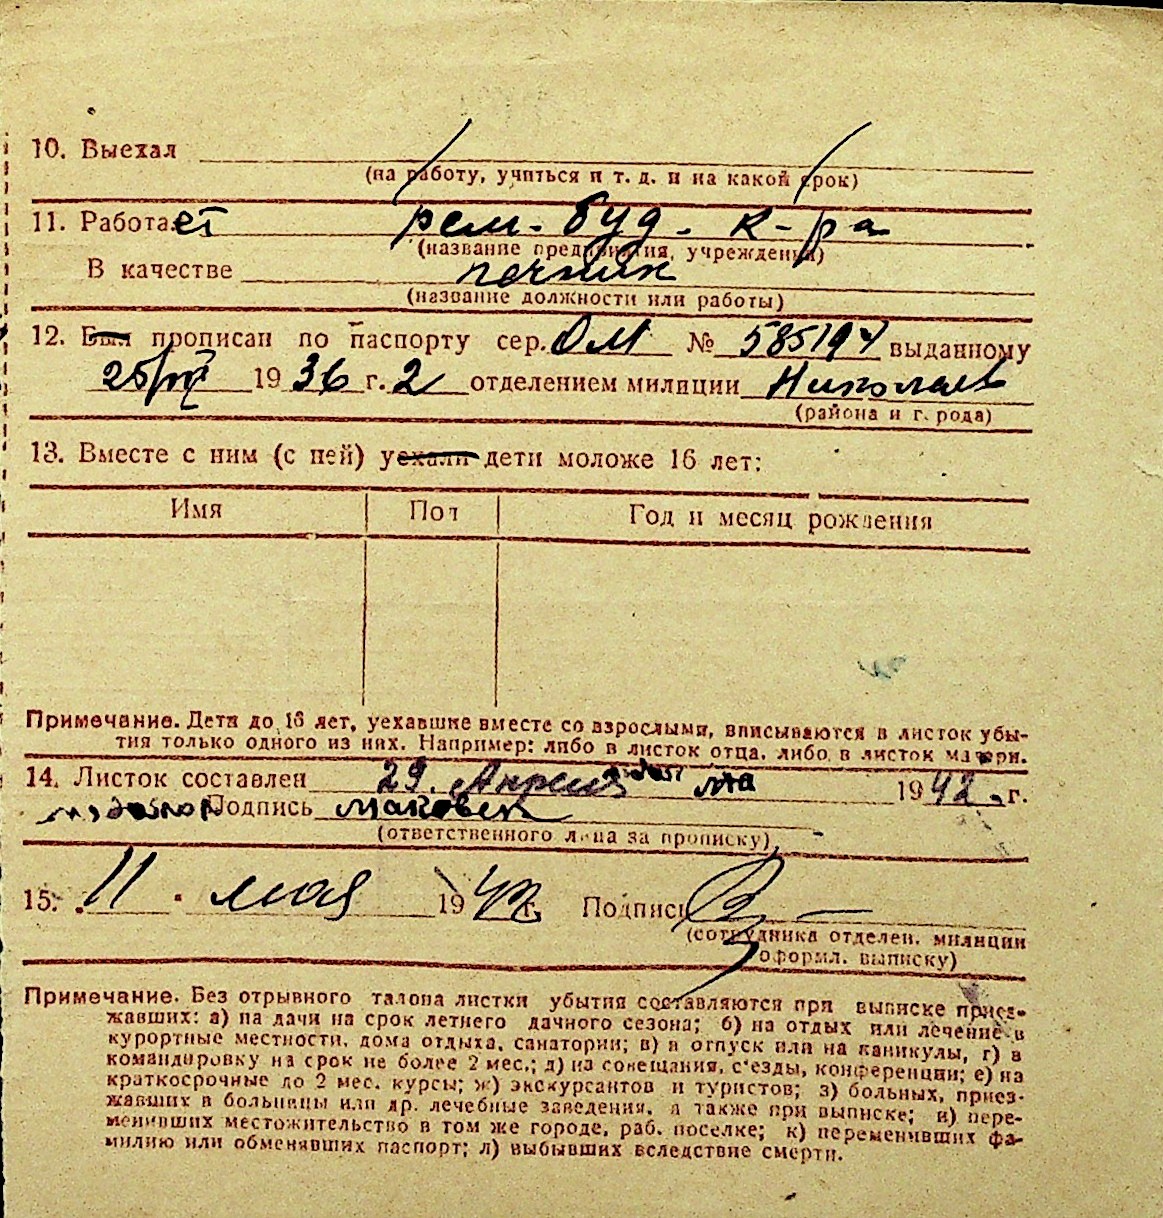 10. Выехал
(на работу, учиться и т. д. и на какой срок)
11. Работает рем.-буд. к-ра
(название предприятия, учреждения)
В качестве печник
(название должности или работы)
12. Был прописан по паспорту сер. ОМ № 585194 выданному
25/VII 1936 г. 2 отделением милиции Николаев
(района и г. рода)
13. Вместе с ним (с ней) уехали дети моложе 16 лет:
Имя Пол Год и месяц рождения
Примечание. Дети до 16 лет, уехавшие вместе со взрослыми, вписываются в листок убы-
тия только одного из них. Например: либо в листок отца, либо в листок матери.
14. Листок составлен 29. Апреля 1942 г.
Подпись
(ответственного лица за прописку)
15. 11 мая 1942 г. Подпись
(сотрудника отделен. милиции
оформл. выписку)
Примечание. Без отрывного талона листки убытия составляются при выписке приез-
жавших: а) на дачи на срок летнего дачного сезона; б) на отдых или лечение в
курортные местности, дома отдыха, санатории; в) в отпуск или на каникулы, г) в
командировку на срок не более 2 мес.; д) на совещания, с'езды, конференции; е) на
краткосрочные до 2 мес. курсы; ж) экскурсантов и туристов; з) больных, приез-
жавших в больницы или др. лечебные заведения, а также при выписке; и) пере-
менивших местожительство в том же городе, раб. поселке; к) переменивших фа-
милию или обменявших паспорт; л) выбывших вследствие смерти.